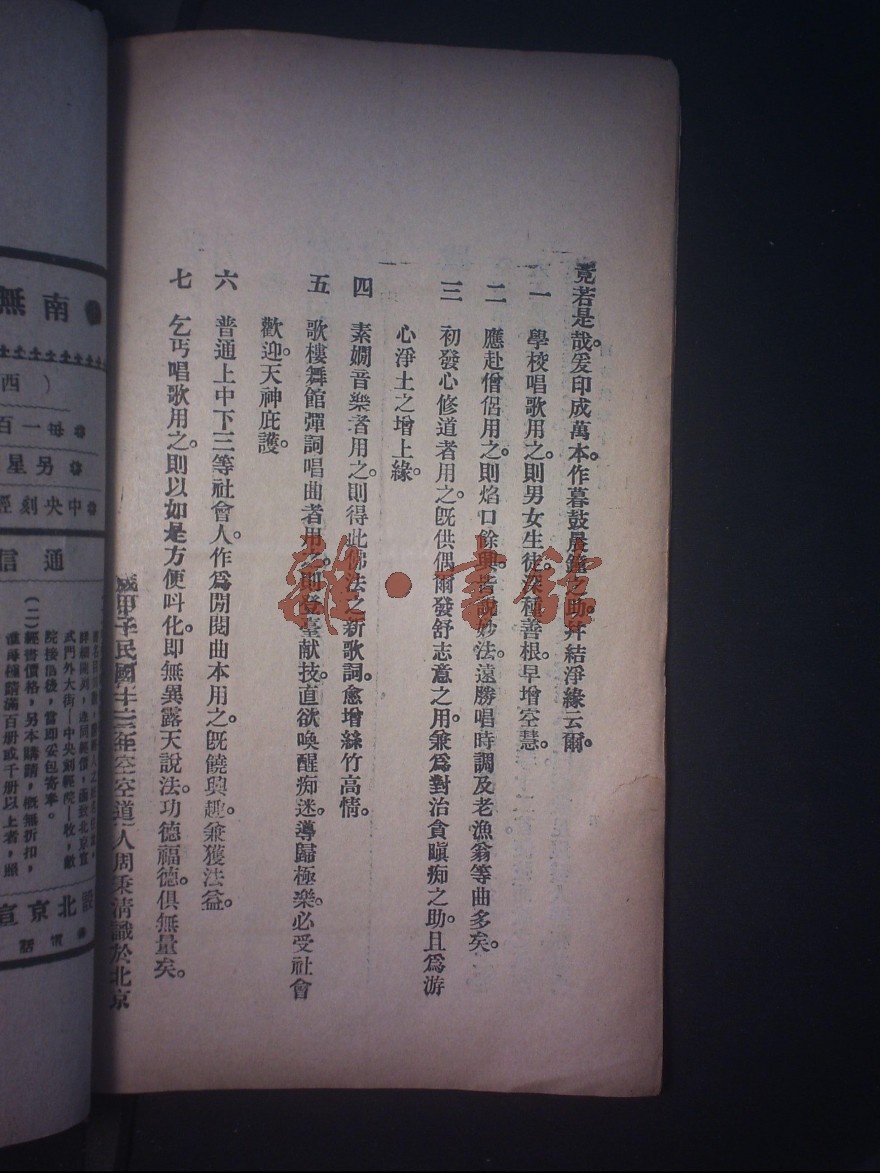 竟若是哉。爰印成萬本。作暮鼓晨鐘之助。幷結淨緣云爾。
一 學校唱歌用之。則男女生徒。深種善根。早增空慧。
二 應赴僧侶用之。則焰口餘興。皆說妙法。遠勝唱時調及老漁翁等曲多矣。
三 初發心修道者用之。旣供偶爾發舒志意之用。兼爲對治貪瞋痴之助。且爲游
心淨土之增上緣。
四 素嫺音樂者用之。則得此佛法之新歌詞。愈增絲竹高情。
五 歌樓舞館彈詞唱曲者用之。則登臺献技。直欲喚醒痴迷。導歸極樂。必受社會
歡迎。天神庇護。
六 普通上中下三等社會人。作爲閒閱曲本用之。旣饒興趣。兼獲法益。
七 乞丐唱歌用之。則以如是方便呌化。即無異露天說法。功德福德。俱無量矣。
歲甲子民國十三年空空道人周秉清識於北京
雜·書館
南無
（西
每一百
另星
中央刻經
通信
武門外大街—中央刻經院—收，敝
院接信後，當即妥包寄奉。
（二）經書價格，另本購請，概無折扣，
惟每種請滿百册或千册以上者，照
設北京宣